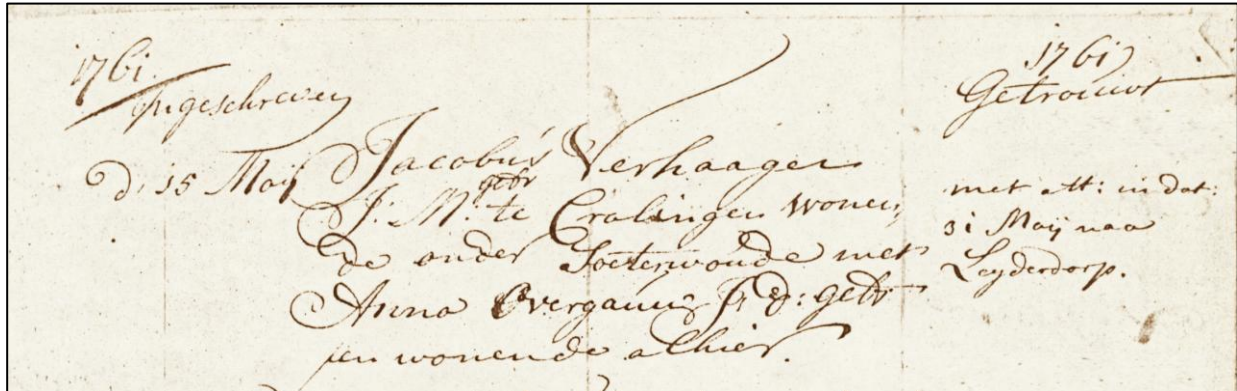 1761.
Ingeschreven
d: 15 Maij
Jacobus Verhaagen
J: M: gebr te Cralingen wonen,
de onder Soeterwoude met
Anna Overgauw J: d: gebr
en wonende alhier.
1761
Getrouwt
met att: in dat:
31 Maij naa
Leyderdorp.